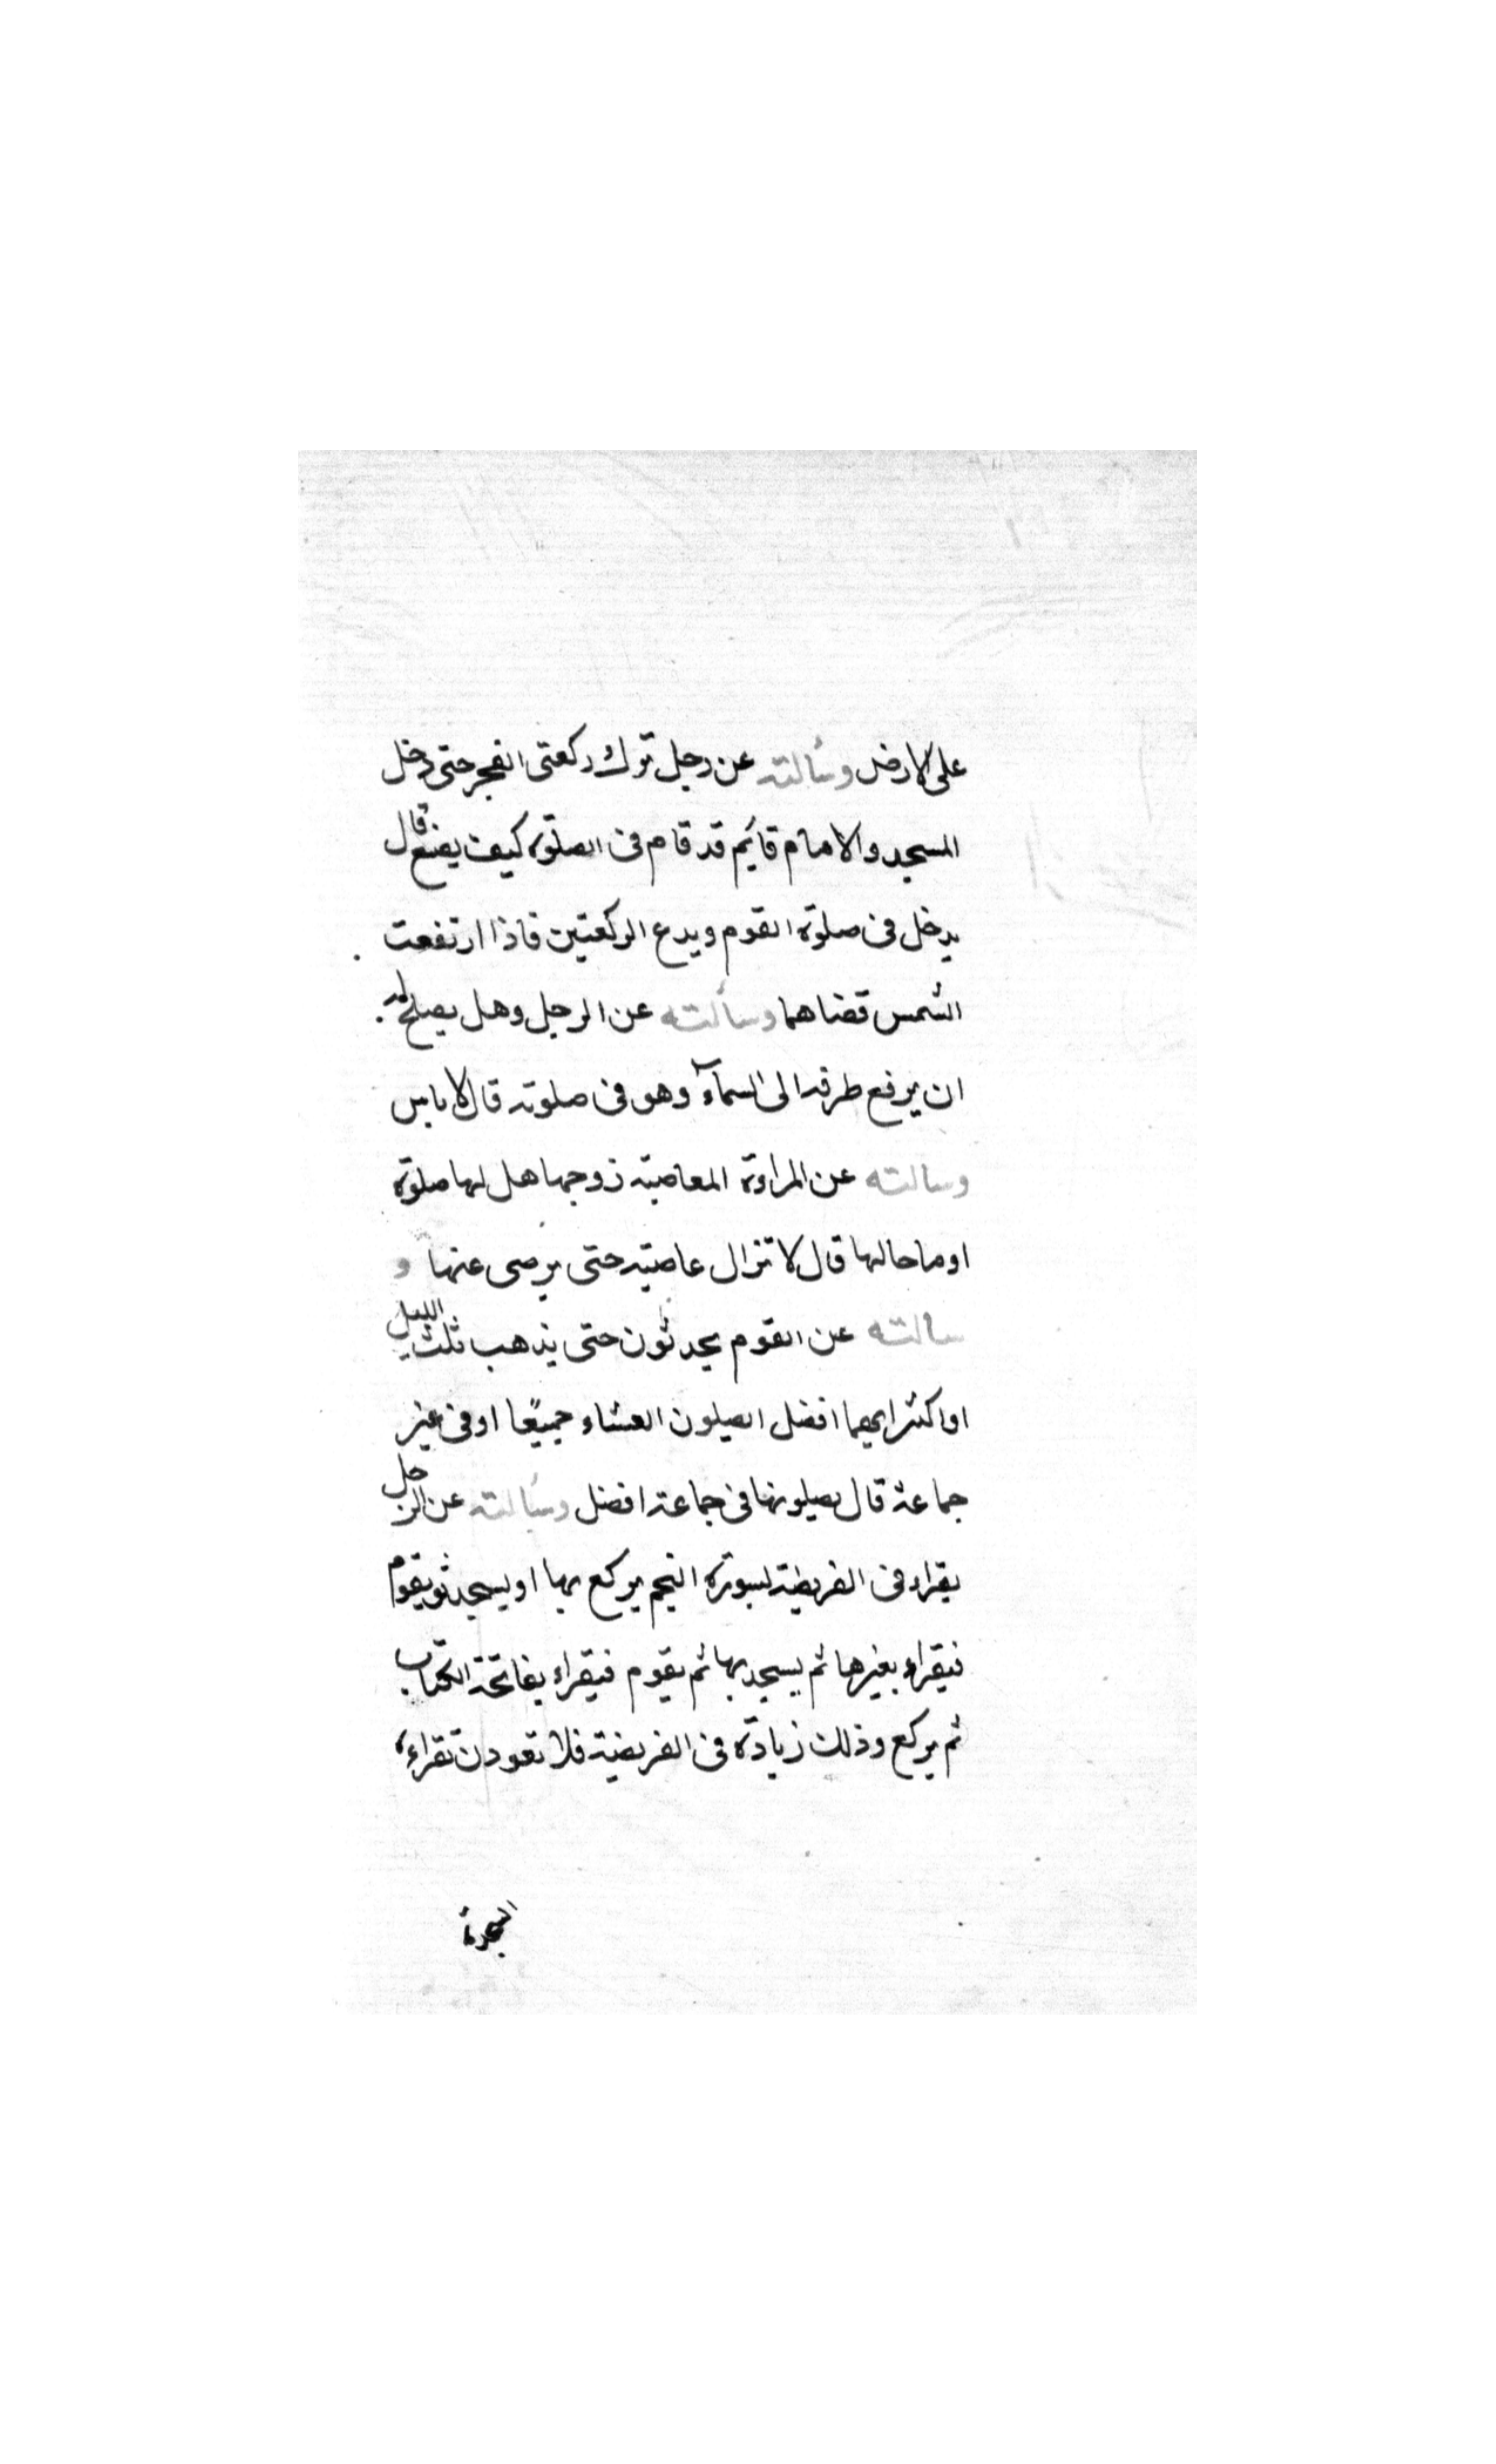 على الارض وسألته عن رجل ترك ركعتى الفجر حتى دخل
المسجد والامام قائم قد قام فى الصلوة كيف يصنع قال
يدخل فى صلوة القوم ويدع الركعتين فاذا ارتفعت
الشمس قضاهما وسألته عن الرجل وهل يصلح له
ان يرفع طرفه الى السمآء وهو فى صلوته قال لا باس
وسالته عن المراءة المعاصية زوجها هل لها صلوة
او ما حالها قال لا تزال عاصية حتى يرضى عنها و
سالته عن القوم يحدثون حتى يذهب ثلث الليل
او اكثر ايهما افضل ايصلون العشاء جميعًا او فى غير
جماعة قال يصلونها فى جماعة افضل وسألته عن الرجل
يقراء فى الفريضة بسورة النجم يركع بها او يسجد ثم يقوم
فيقراء بغيرها ثم يسجد بها ثم يقوم فيقراء بفاتحة الكتاب
ثم يركع وذلك زيادة فى الفريضة فلا تعودن تقراءه
السجدة